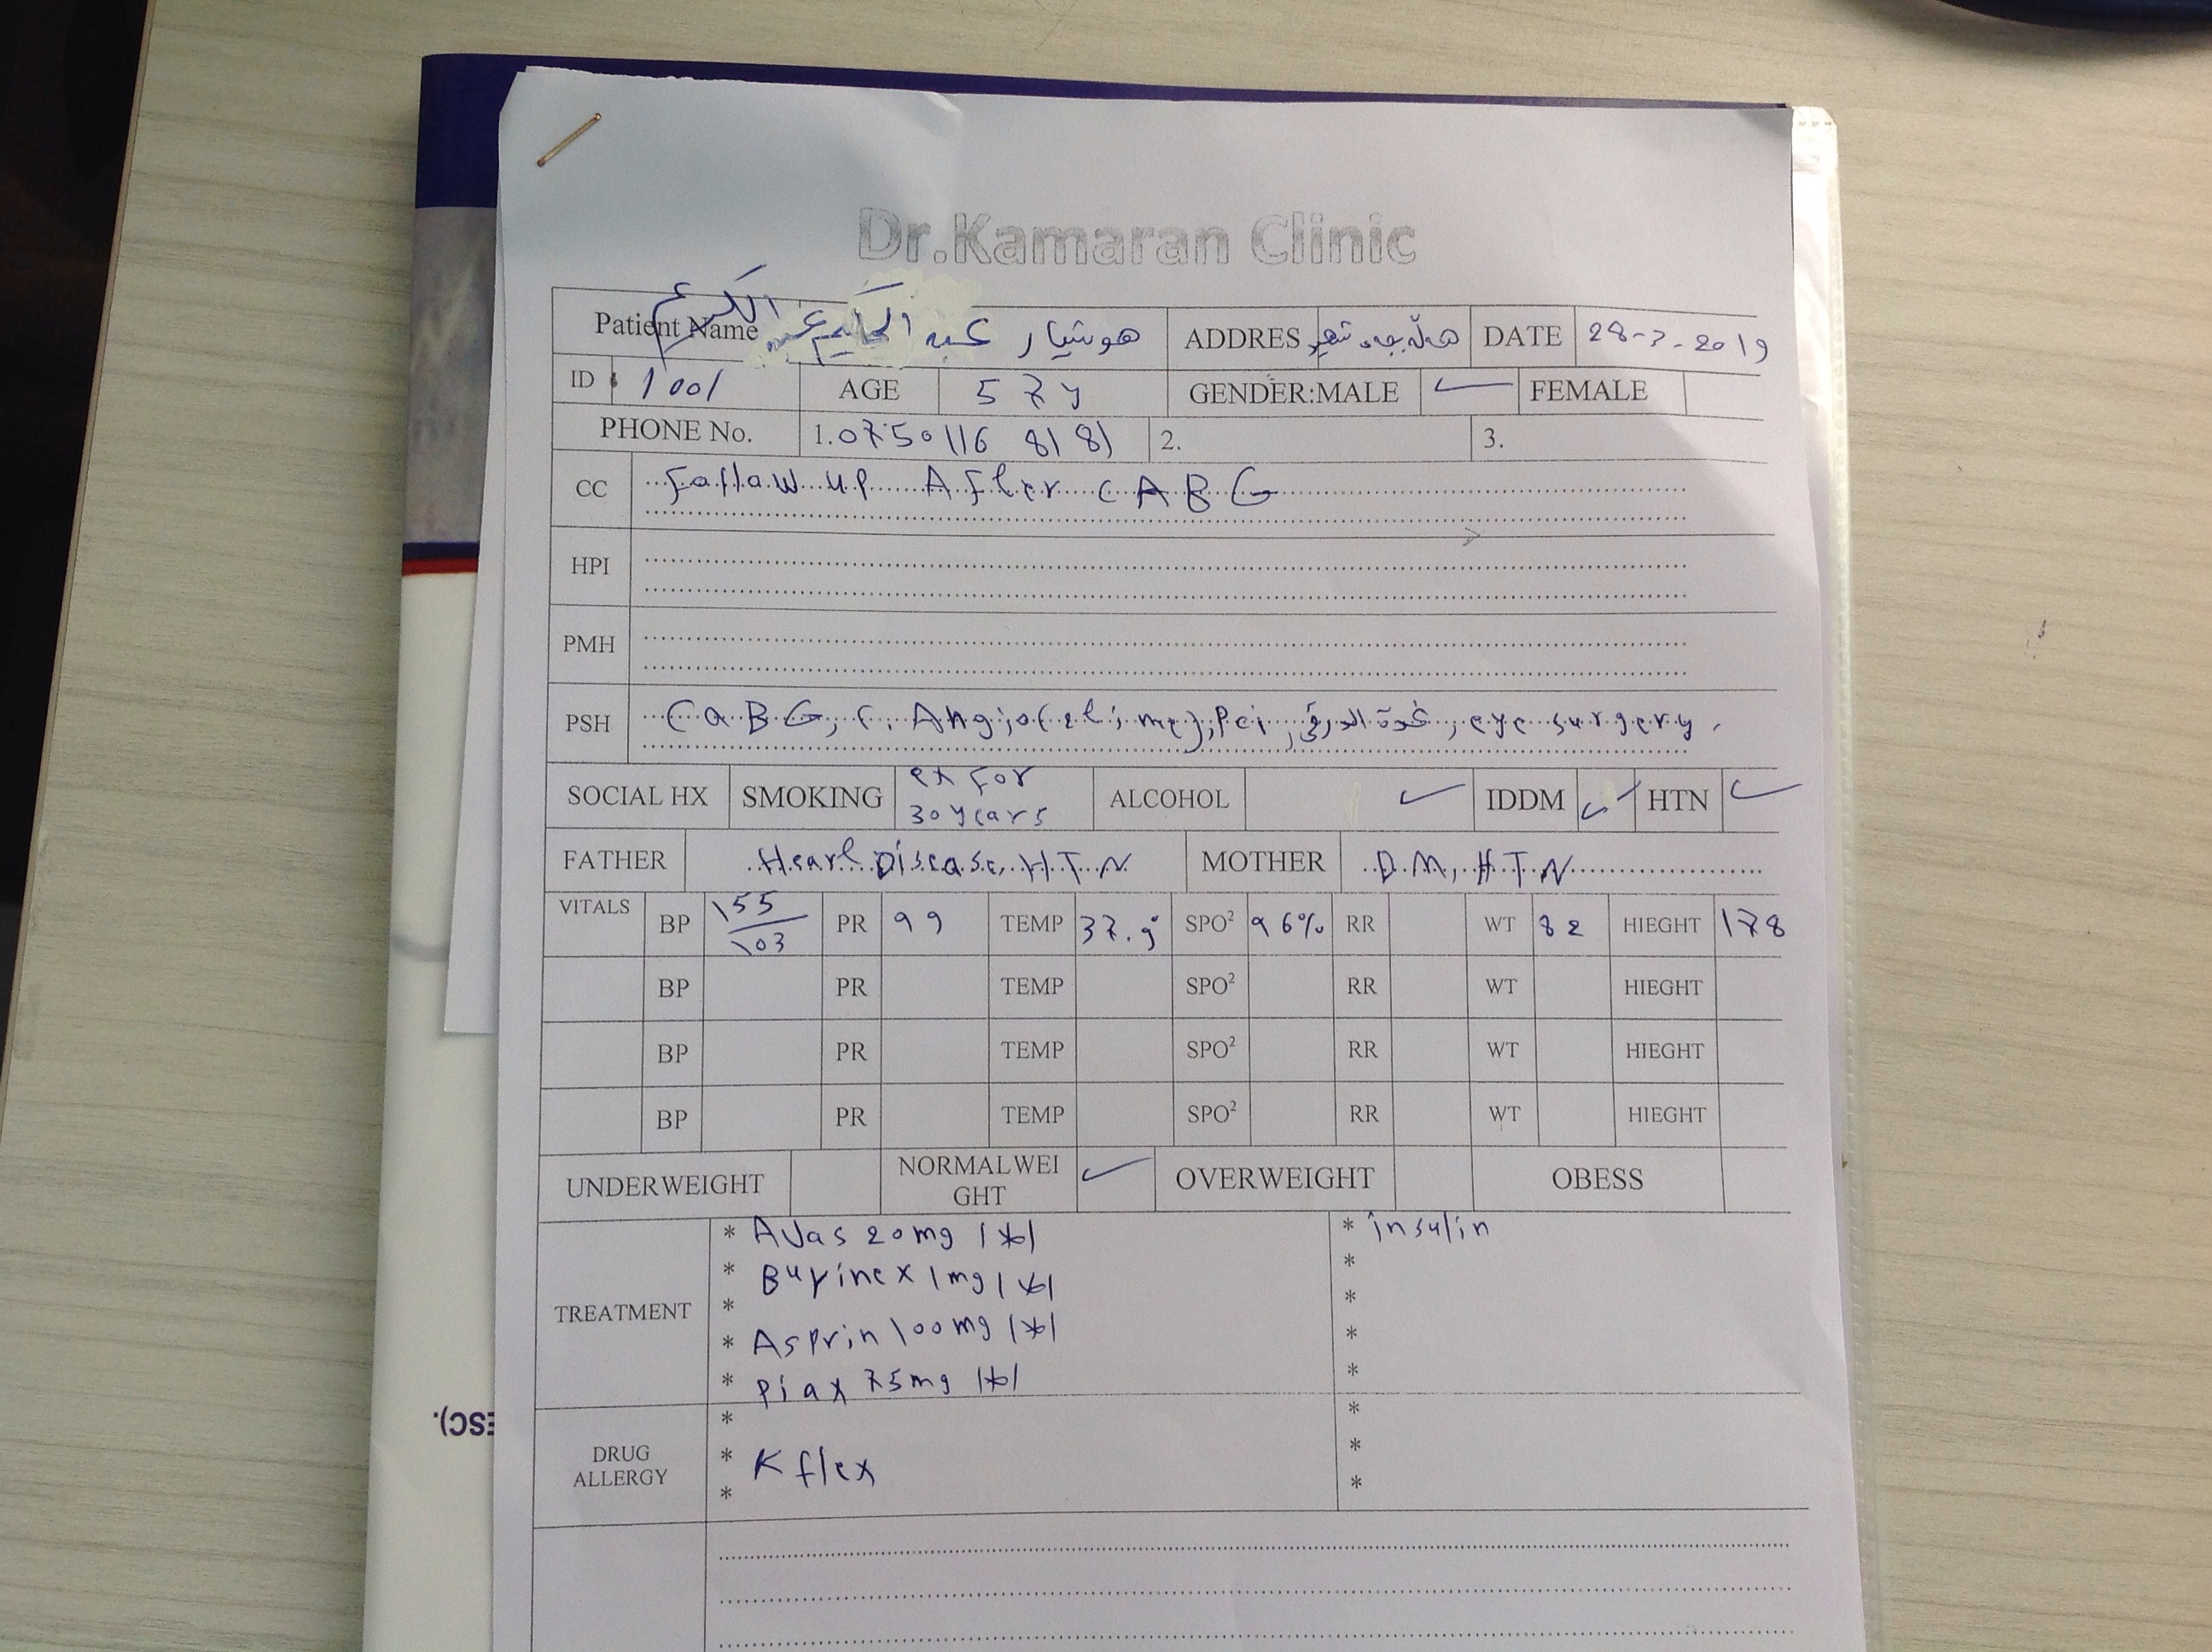 Dr.Kamaran Clinic
Patient Name هوشیار عبد الحکیم عبد الکریم ADDRES هەڵەبجە شهید DATE 28-3-2019
ID 1001 AGE 57 y GENDER:MALE ✓ FEMALE
PHONE No. 1.0750116 8181 2. 3.
CC Faflaw up After CABG
HPI
PMH
PSH CaBG, C. Angio(2time), Pci, غدة الدرقي, eye surgery.
SOCIAL HX SMOKING ex For 30 years ALCOHOL ✓ IDDM ✓ HTN ✓
FATHER Heart Disease, HTN MOTHER D.M, HTN
VITALS BP 155/103 PR 99 TEMP 37. SPO² 96% RR WT 82 HIEGHT 178
BP PR TEMP SPO² RR WT HIEGHT
BP PR TEMP SPO² RR WT HIEGHT
BP PR TEMP SPO² RR WT HIEGHT
UNDERWEIGHT NORMALWEIGHT ✓ OVERWEIGHT OBESS
TREATMENT
* Avas 20mg 1*1 * insulin
* Burinex 1mg 1*1 *
* *
* Asprin 100mg 1*1 *
* Piax 75mg 1*1 *
DRUG ALLERGY
* *
* Kflex *
* *
ESC).